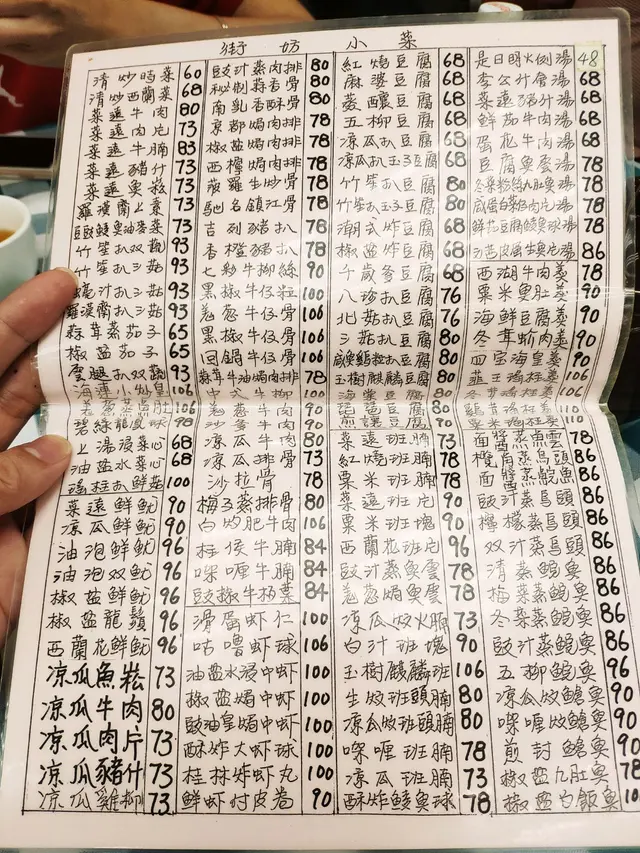 街坊小菜
清炒時菜 60
清炒西蘭菜 68
菜遠牛肉 80
菜遠肉片 73
菜遠牛腩 83
菜遠豬什 73
菜遠魚崧 73
羅漢齋上素 73
豆豉鯪魚油麥菜 73
竹笙扒双菇 93
竹笙扒三菇 93
蠔汁扒三菇 93
羅漢齋扒三菇 93
蒜茸蒸茄子 65
椒盐茄子 65
雲腿扒双蔬 93
海連小炒皇 106
碧綠龍鳳球 98
上湯浸菜心 68
油盐水菜心 68
瑤柱扒鮮菇 100
菜遠鮮魷 90
凉瓜鮮魷 90
油泡鮮魷 96
油泡双魷 96
椒盐鮮魷 96
椒盐龍鬚 96
西蘭花鮮魷 96
凉瓜魚崧 73
凉瓜牛肉 80
凉瓜肉片 73
凉瓜豬什 73
凉瓜雞柳 73
豉汁蒸肉排 80
秘制蒜香骨 80
南乳香酥骨 80
京都焗肉排 78
椒盐焗肉排 78
西檸焗肉排 78
菠蘿生炒骨 78
馳名鎮江骨 78
吉列豬扒 78
香橙豬扒 78
七彩牛柳絲 90
黑椒牛仔粒 100
羗葱牛仔骨 100
黑椒牛仔骨 100
回鍋牛仔骨 100
蒜茸牛油焗肉排 78
中式牛柳 100
羗葱牛肉 90
沙爹牛肉 90
凉瓜牛肉 80
凉瓜排骨 73
沙拉骨 78
梅子蒸排骨 80
白灼肥牛肉 106
柱侯牛腩 84
咖喱牛腩 84
豉椒牛柏葉 84
滑蛋虾仁 100
咕嚕虾球 106
油盐水浸中虾 100
椒盐焗中虾 100
豉油皇焗中虾 100
酥炸大虾球 100
桂林炸虾丸 100
鮮虾付皮卷 90
紅燒豆腐 68
麻婆豆腐 68
蒸釀豆腐 68
五柳豆腐 68
凉瓜扒豆腐 68
凉瓜扒玉子豆腐 68
竹笙扒豆腐 80
竹笙扒玉子豆腐 80
潮式炸豆腐 68
椒盐炸豆腐 68
千歲爹豆腐 68
八珍扒豆腐 76
北菇扒豆腐 76
三菇扒豆腐 80
咸魚雞粒扒豆腐 80
玉樹麒麟豆腐 80
海棠豆腐 80
琵琶豆腐 80
菜遠班腩 73
紅燒班腩 78
粟米班腩 78
菜遠班片 90
粟米班塊 90
西蘭花班片 96
豉汁蒸魚雲 78
羗葱焗魚雲 78
凉瓜炆火腩 73
白汁班塊 90
玉樹麒麟班 106
生炆班頭腩 80
凉瓜炆班頭腩 80
咖喱班腩 78
凉瓜班腩 73
酥炸鯪魚球 78
是日明火例湯 48
李公什會湯 68
菜遠豬什湯 68
鮮茄牛肉湯 68
蛋花牛肉湯 68
豆腐魚雲湯 78
冬菜粉絲九肚魚湯 78
咸蛋白菜肉片湯 78
鮮花豆腐鯪魚球湯 78
86
西湖牛肉羹 78
粟米魚肚羹 90
海鮮豆腐羹 90
冬茸蚧肉羹 90
四宝海皇羹 90
韮王瑤柱羹 106
冬茸瑤柱羹 106
雞茸瑤柱羹 110
面醬蒸魚雲 78
欖角蒸烏頭 86
面醬蒸鯇魚 86
豉汁蒸烏頭 86
檸檬蒸烏頭 86
双汁蒸烏頭 86
清蒸鯇魚 86
梅菜蒸鯇魚 86
冬菜蒸鯇魚 86
豉汁蒸鯇魚 86
五柳鯇魚 96
凉瓜炆鯰魚 90
咖喱炆鯰魚 90
煎封鯰魚 90
椒盐九肚魚 78
椒盐白飯魚